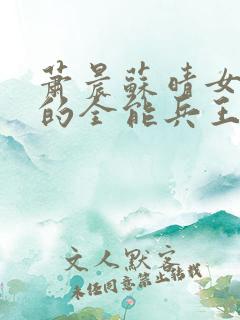 蕭晨蘇晴女
的全能兵王
文人默客
未经同意禁止转载